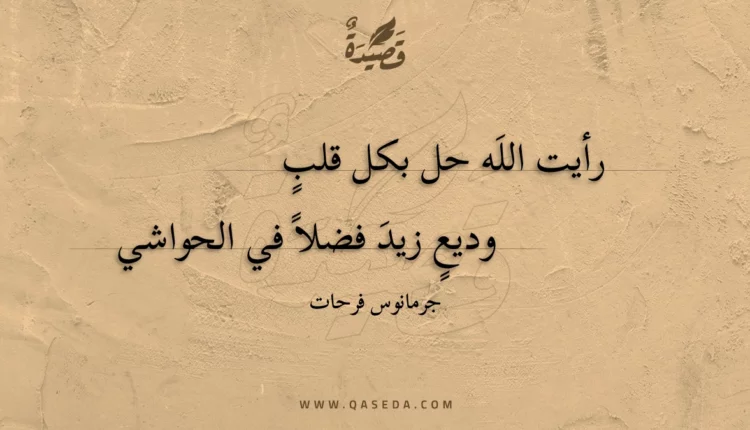 قَصِيْدَةٌ
رأيت اللَه حل بكل قلبٍ
وديعٍ زيدَ فضلاً في الحواشي
جرمانوس فرحات
WWW.QASEDA.COM